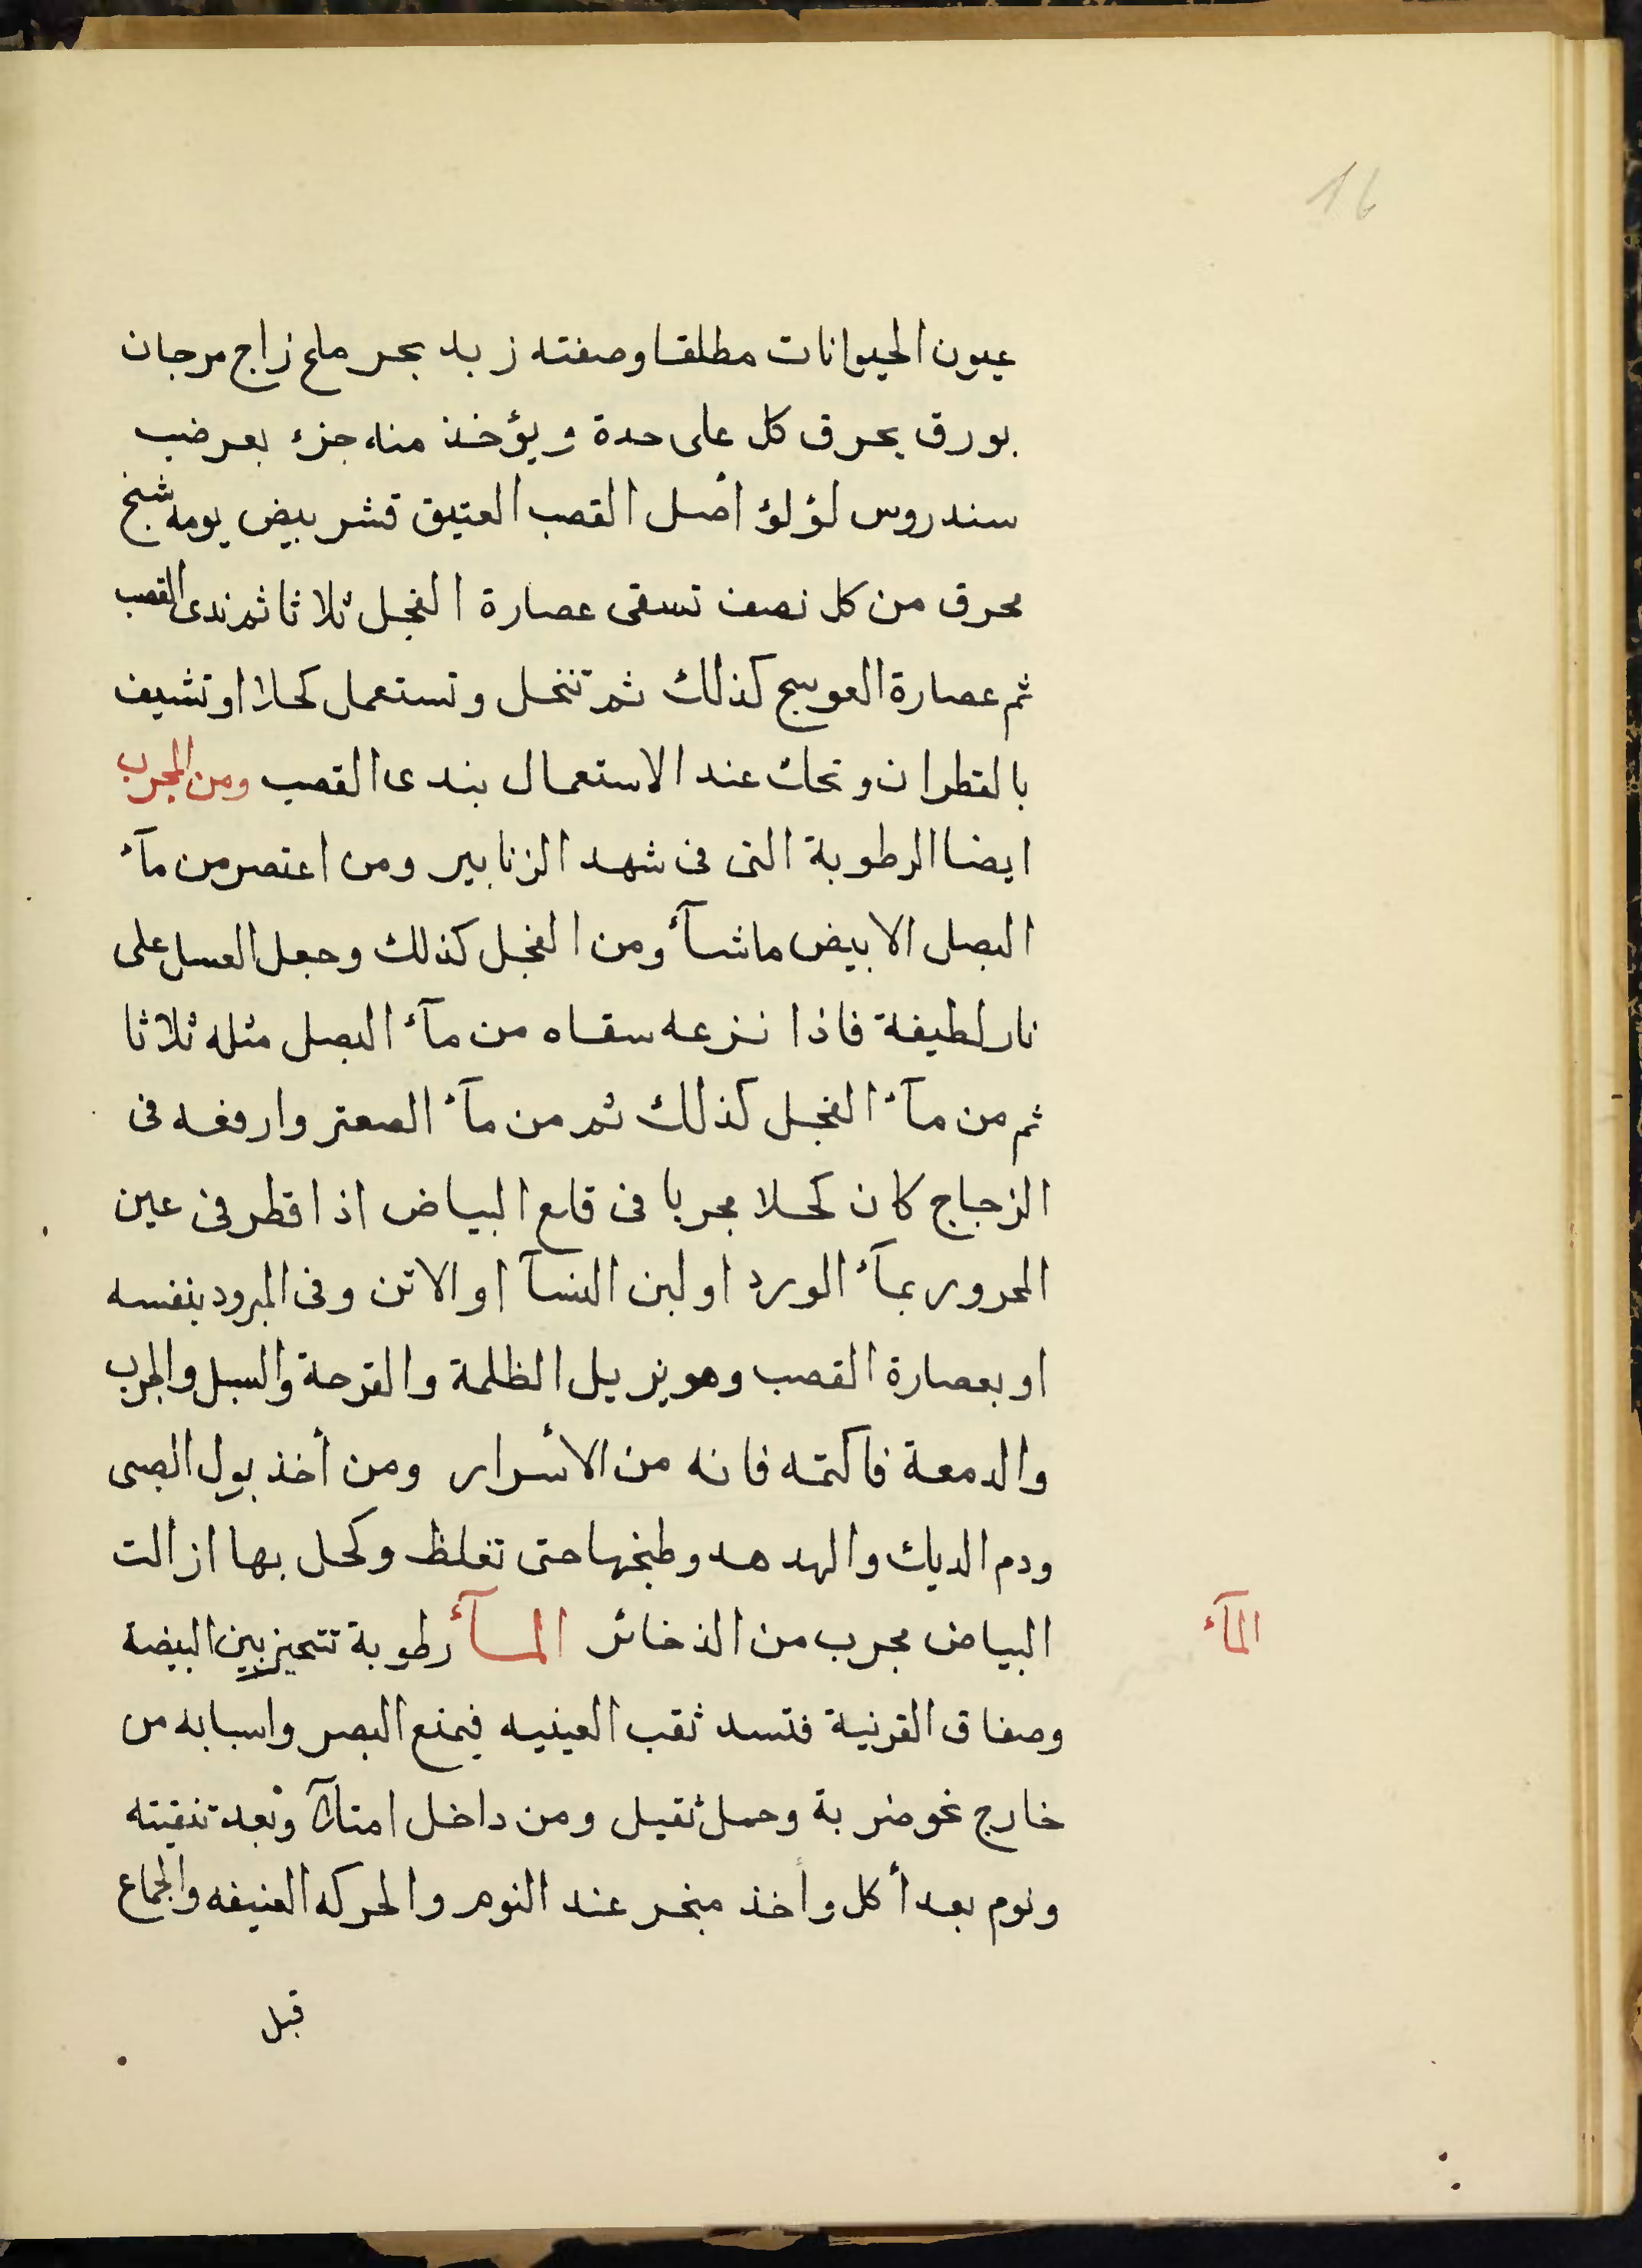 16
عيون الحيوانات مطلقا وصفته زبد بحر ملح زاج مرجان
بورق يحرق كل على حدة ويؤخذ منه جزء بعر ضب
سندروس لؤلؤ أصل القصب العتيق قشر بيض يومه شيخ
محرق من كل نصف تسقى عصارة الفجل ثلاثا ثم ندى القصب
ثم عصارة العوسج كذلك ثم تنخل وتستعمل كحلا او تشيف
بالقطران وتحك عند الاستعمال بندى القصب ومن المجرب
ايضا الرطوبة التى فى شهد الزنابير ومن اعتصر من مآء
البصل الابيض ما شآء ومن الفجل كذلك وجعل العسل على
نار لطيفة فاذا نزعه سقاه من مآء البصل مثله ثلاثا
ثم من مآء الفجل كذلك ثم من مآء الصعتر وارفعه فى
الزجاج كان كحلا مجربا فى قلع البياض اذا قطر فى عين
المحرور بمآء الورد او لبن النسآ او الاتن وفى المبرود بنفسه
او بعصارة القصب وهو يزيل الظلمة والقرحة والسبل والجرب
والدمعة فاكتمه فانه من الأسرار ومن أخذ بول الصبى
ودم الديك والهدهد وطبخها حتى تغلظ وكحل بها ازالت
البياض مجرب من الذخائر المآء رطوبة تتحيز بين البيضة
المآء
وصفاق القرنية فتسد ثقب العينيه فيمنع البصر واسبابه من
خارج نحو ضربة وحمل ثقيل ومن داخل امتلآ وبعد تنقيته
ونوم بعد أكل وأخذ مبخر عند النوم والحركه العنيفه والجماع
قبل